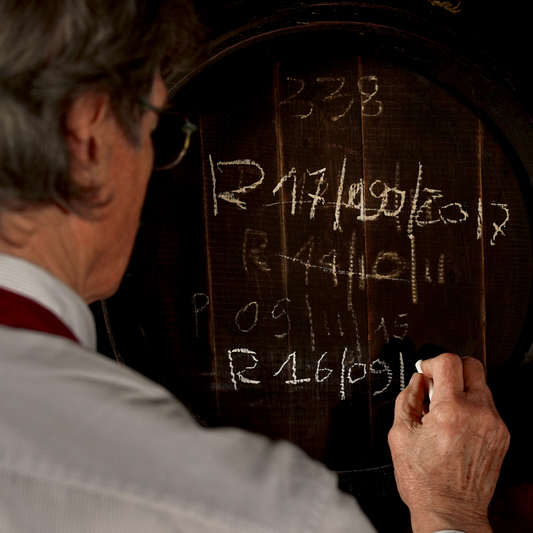 338
R 17/09/2017
R 14/10/11
P 09/11/15
R 16/09/